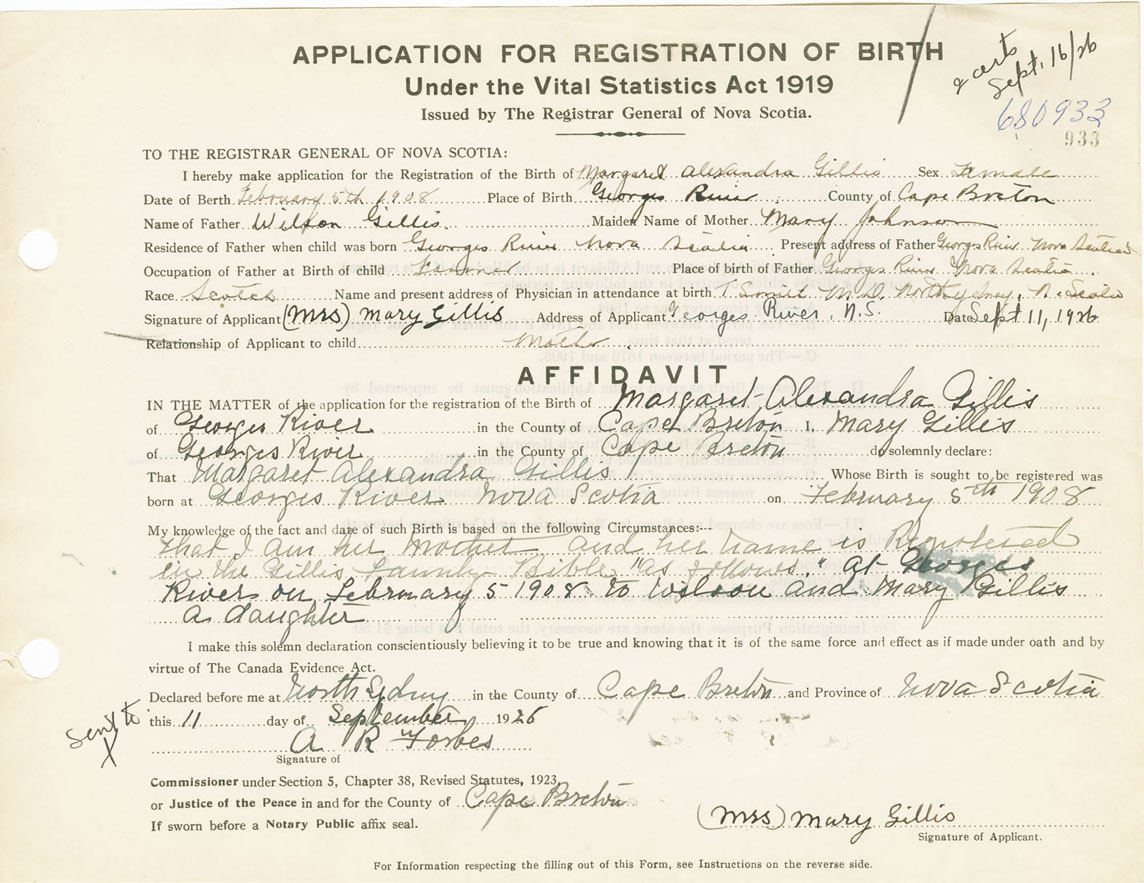 APPLICATION FOR REGISTRATION OF BIRTH
Under the Vital Statistics Act 1919
Issued by The Registrar General of Nova Scotia.
Sept. 16/26
680933
933
TO THE REGISTRAR GENERAL OF NOVA SCOTIA:
I hereby make application for the Registration of the Birth of Margaret Alexandra Gillis Sex Female
Date of Berth February 5th 1908 Place of Birth Georges River County of Cape Breton
Name of Father Wilson Gillis Maiden Name of Mother Mary Johnson
Residence of Father when child was born Georges River Nova Scotia Present address of Father Georges River Nova Scotia
Occupation of Father at Birth of child Farmer Place of birth of Father Georges River Nova Scotia
Race Scotch Name and present address of Physician in attendance at birth M.D. North Sydney, N. Scotia
Signature of Applicant (Mrs) Mary Gillis Address of Applicant Georges River, N.S. Date Sept 11, 1926
Relationship of Applicant to child Mother
AFFIDAVIT
IN THE MATTER of the application for the registration of the Birth of Margaret Alexandra Gillis
of Georges River in the County of Cape Breton I, Mary Gillis
of Georges River in the County of Cape Breton do solemnly declare:
That Margaret Alexandra Gillis Whose Birth is sought to be registered was
born at Georges River Nova Scotia on February 5th 1908
My knowledge of the fact and date of such Birth is based on the following Circumstances:
that I am her Mother, and her name is Registered
in the Gillis Family Bible "as follows." at Georges
River on February 5 1908 to Wilson and Mary Gillis
a daughter
I make this solemn declaration conscientiously believing it to be true and knowing that it is of the same force and effect as if made under oath and by
virtue of The Canada Evidence Act.
Declared before me at North Sydney in the County of Cape Breton and Province of Nova Scotia
this 11 day of September 1926
Sent to
A R Forbes
Signature of
Commissioner under Section 5, Chapter 38, Revised Statutes, 1923,
or Justice of the Peace in and for the County of Cape Breton
If sworn before a Notary Public affix seal.
(Mrs) Mary Gillis
Signature of Applicant.
For Information respecting the filling out of this Form, see Instructions on the reverse side.